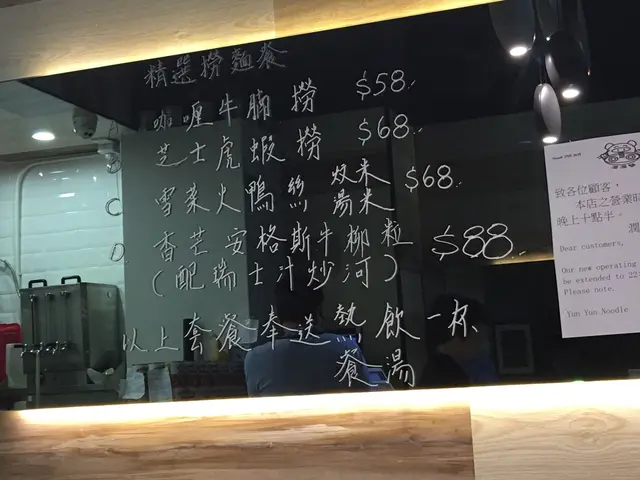 精選撈麵餐
A. 咖喱牛腩撈 $58.
B. 芝士虎蝦撈 $68.
C. 雪菜火鴨絲炆米 $68.
湯米
D. 香芒安格斯牛柳粒 $88.
(配瑞士汁炒河)
以上套餐奉送熱飲一杯
餐湯
致各位顧客，
本店之營業時
晚上十點半。
潤
Dear customers,
Our new operating
be extended to 22
Please note.
Yun Yun Noodle